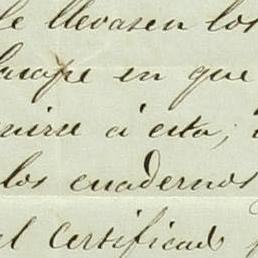 le llevasen los
en que
unirse á esta;
los cuadernos
el Certificad